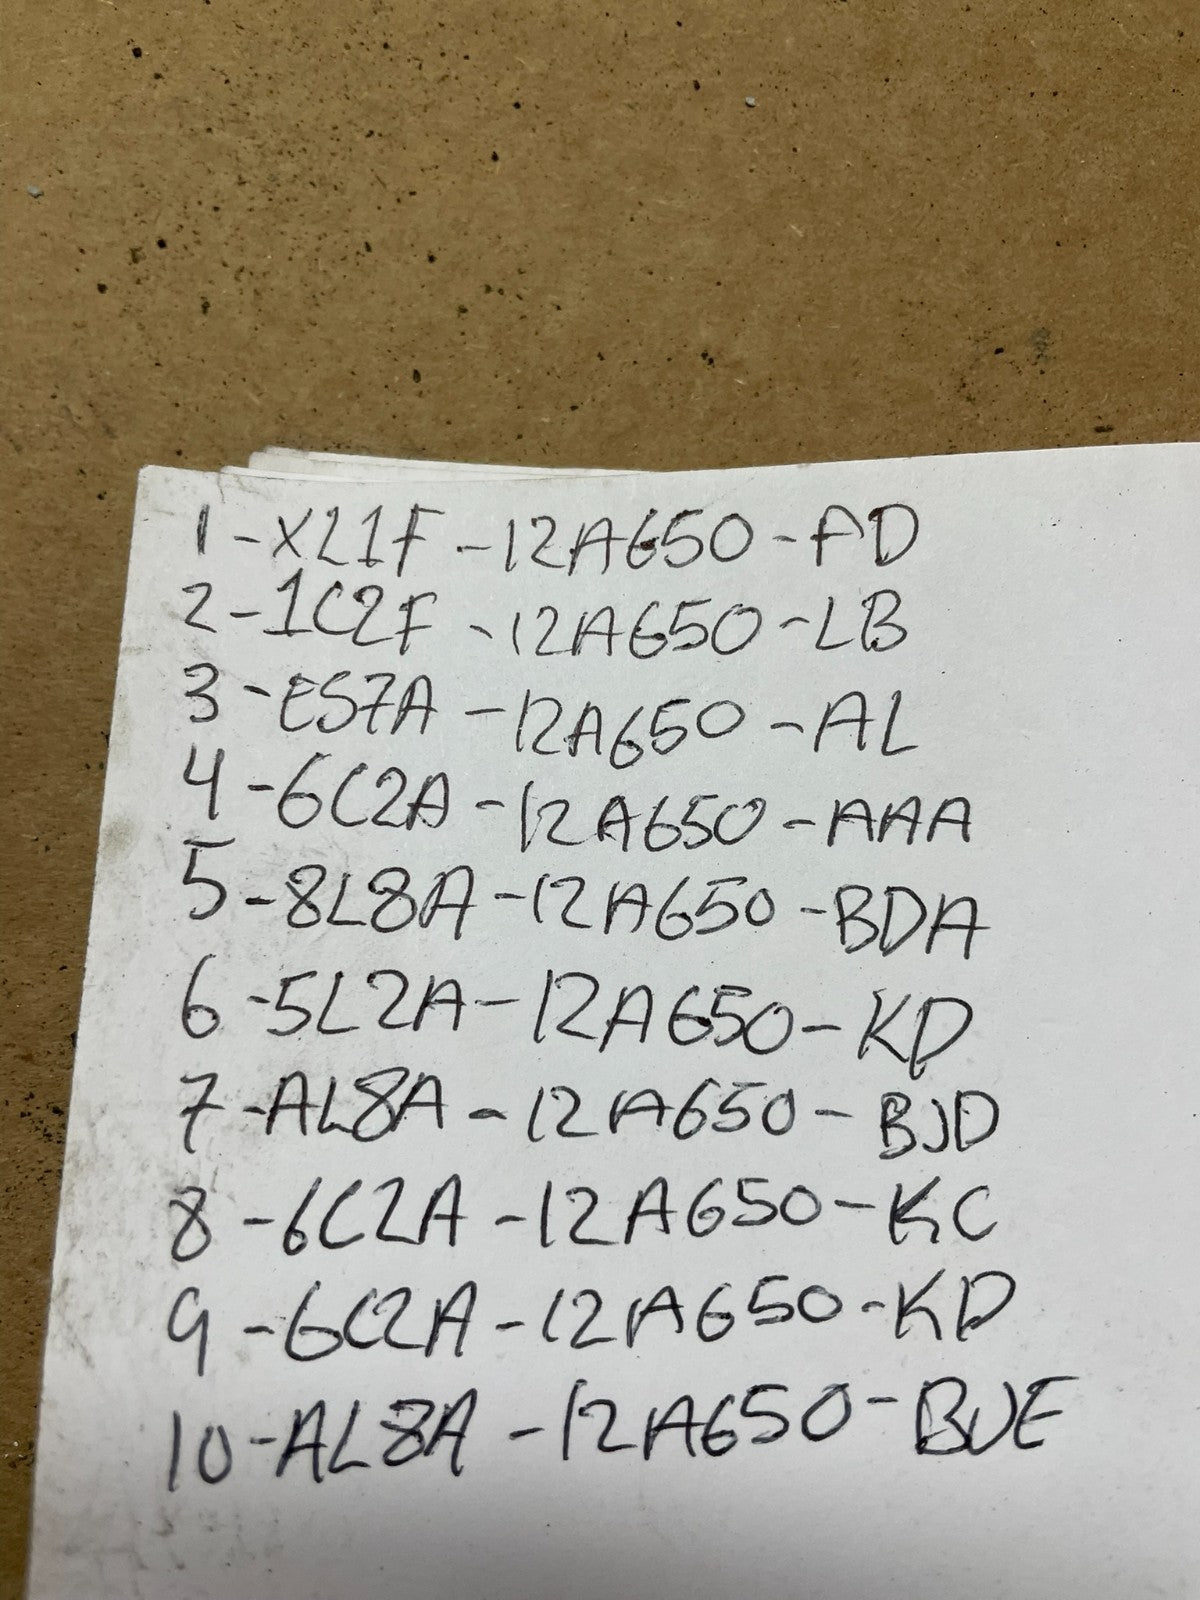 1-XL1F-12A650-AD
2-1C2F-12A650-LB
3-ES7A-12A650-AL
4-6C2A-12A650-AAA
5-8L8A-12A650-BDA
6-5L2A-12A650-KD
7-AL8A-12A650-BJD
8-6C2A-12A650-KC
9-6C2A-12A650-KD
10-AL8A-12A650-BJE